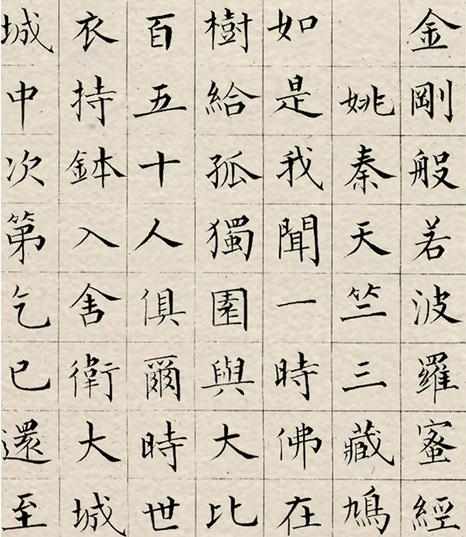 金剛般若波羅蜜經
姚秦天竺三藏鳩
如是我聞一時佛在
樹給孤獨園與大比
百五十人俱爾時世
衣持鉢入舍衛大城
城中次第乞已還至